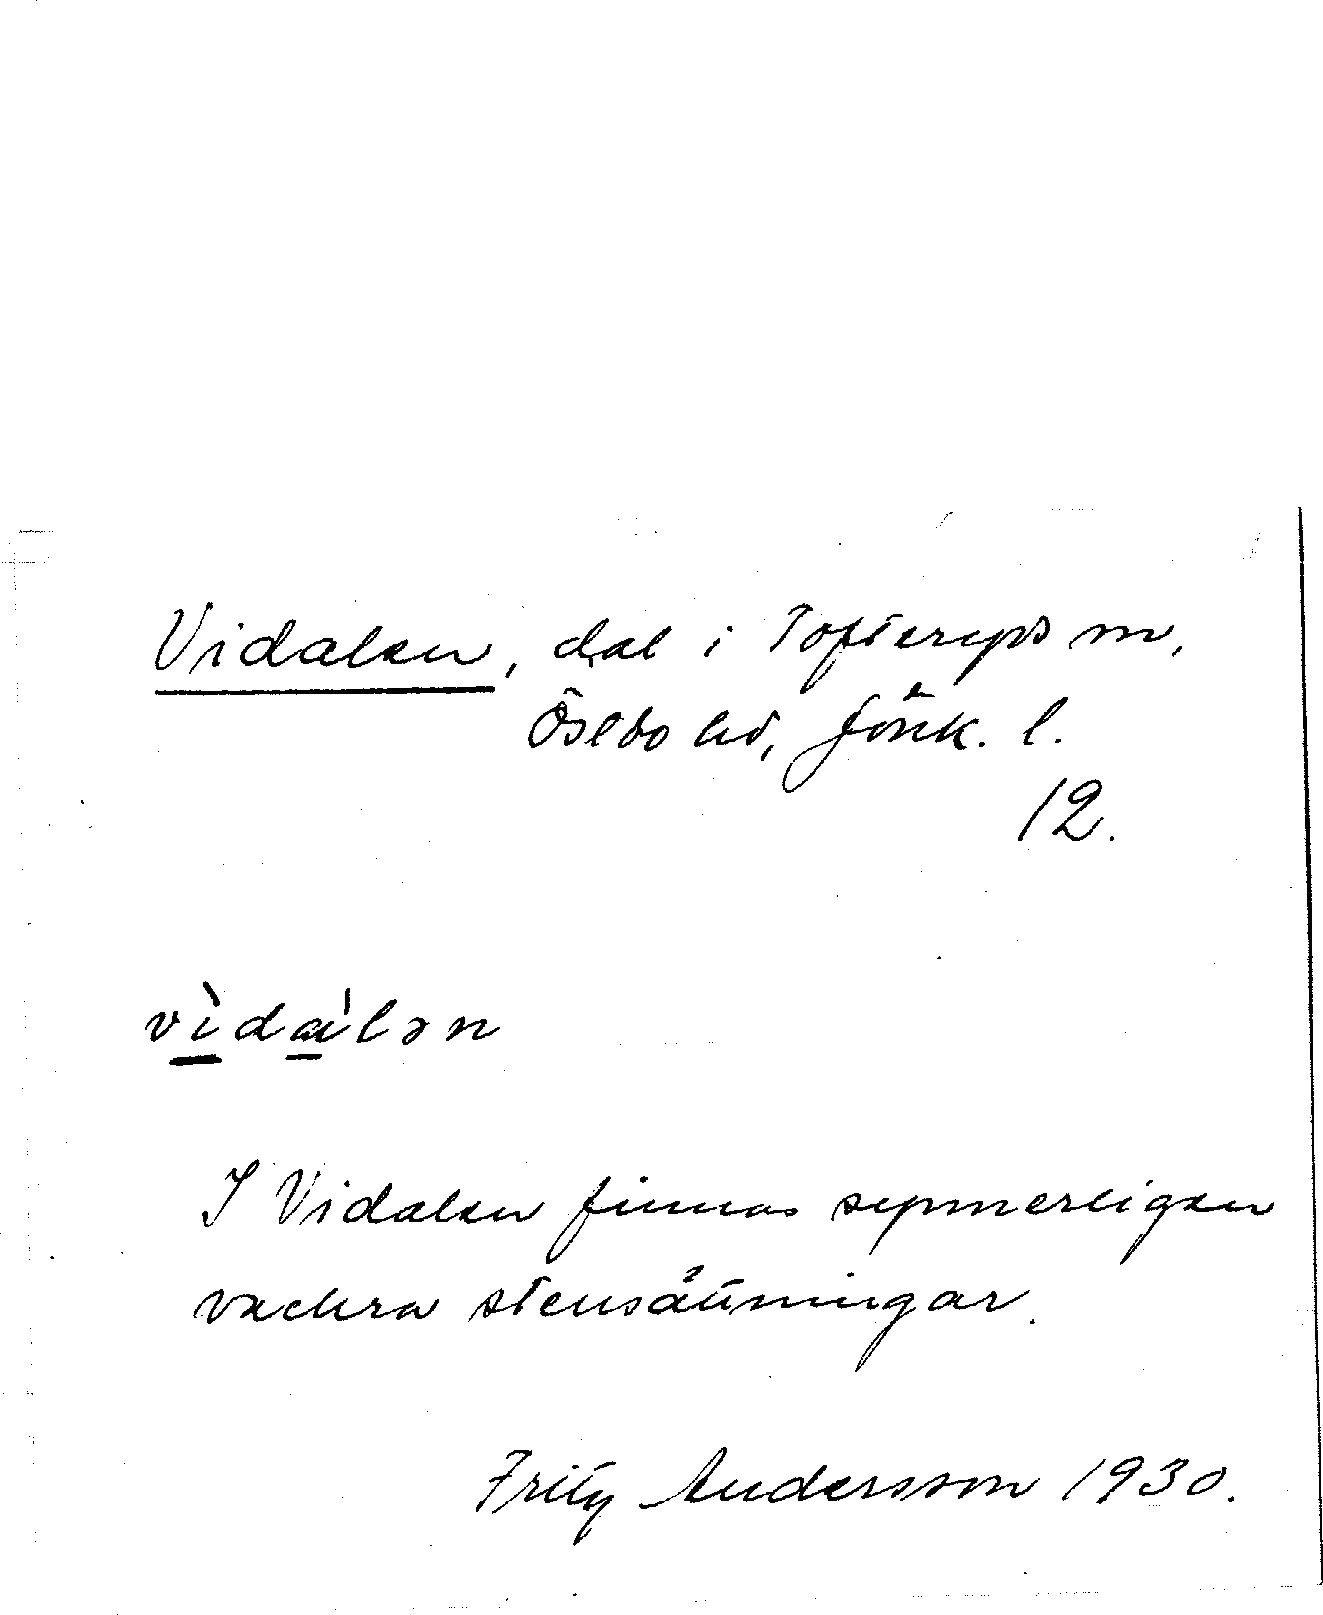 Vidalen, dal i Tofteryds sn,
Östbo hd, Jönk. l.
12.
vìdàlən
I Vidalen finnas synnerligen
vackra stensättningar.
Fritz Andersson 1930.